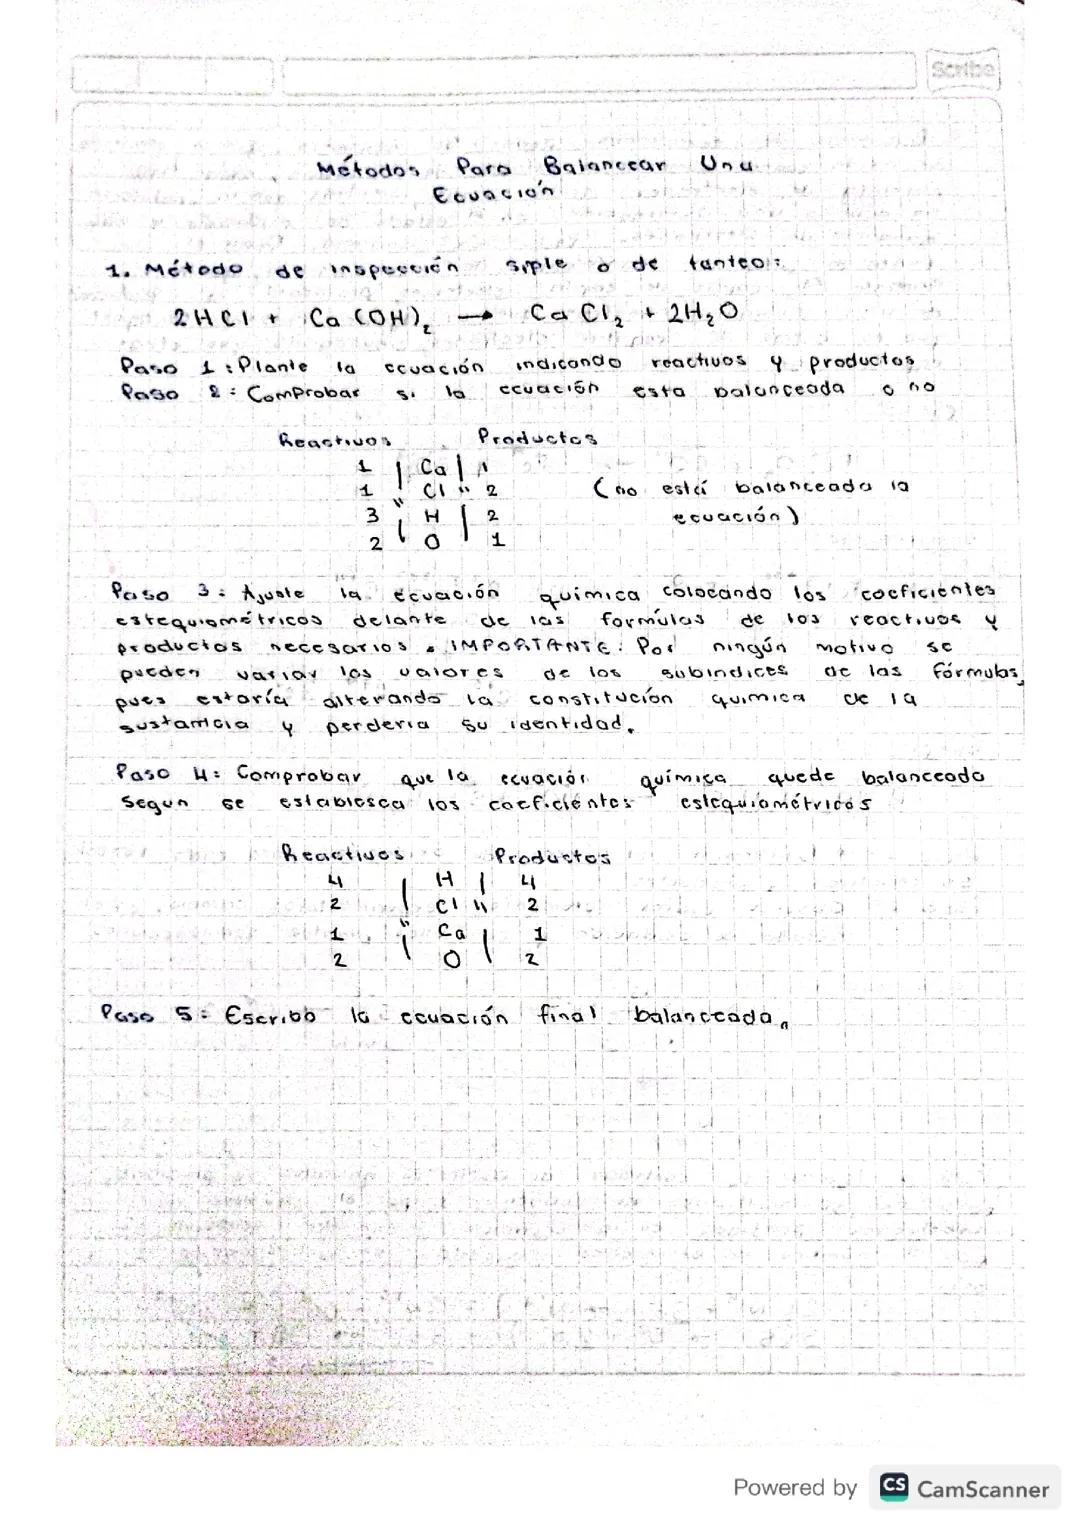 Scribe
Métodos Para Balancear Una
Ecuación
1. Método de inspección siple o de tanteo:
2HCl + Ca(OH)₂ → CaCl₂ + 2H₂O
Paso 1: Plante la ecuación indicando reactivos y productos
Paso 2: Comprobar si la ecuación esta balanceada o no
Reactivos Productos
1 | Ca | 1
1 | Cl " 2 (no está balanceada la
3 " | H | 2 ecuación)
2 | O | 1
Paso 3: Ajuste la ecuación química colocando los coeficientes
estequiométricos delante de las formúlas de los reactivos y
productos necesarios. IMPORTANTE: Por ningún motivo se
pueden variar los valores de los subindices de las fórmulas,
pues estaría alterando la constitución quimica de la
sustancia y perderia su identidad.
Paso 4: Comprobar que la ecuación química quede balanceada
Segun se establesca los coeficientes estequiométricos
Reactivos Productos
4 | H | 4
2 | Cl " 2
1 " | Ca | 1
2 | O | 2
Paso 5: Escriba la ecuación final balanceada.
Powered by CS CamScanner